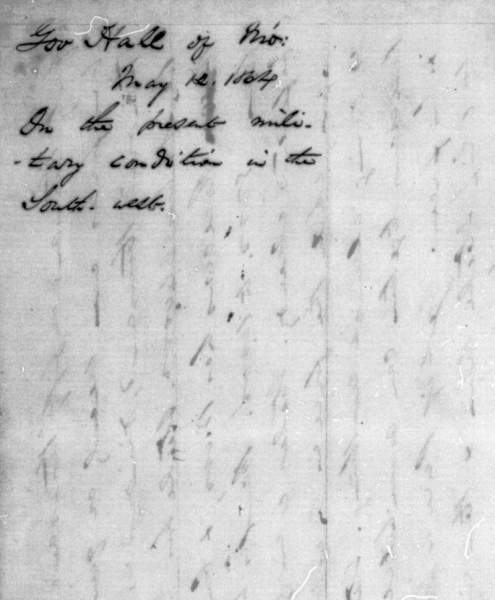 Gov Hall of Mo:
May 12. 1864
On the present mili-
-tary condition in the
South-west.